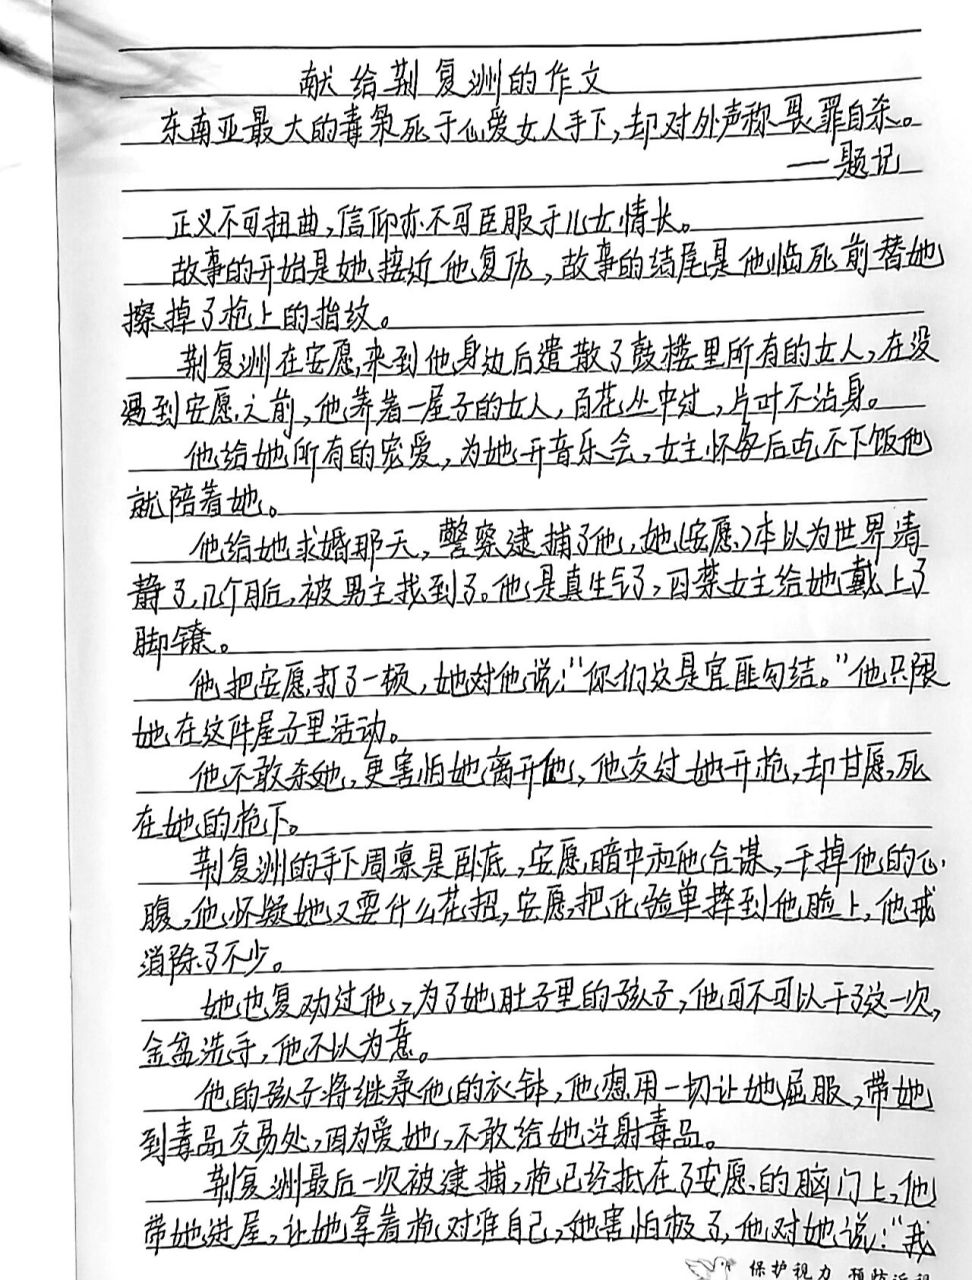 献给荆复洲的作文
东南亚最大的毒枭死于心爱女人手下,却对外声称畏罪自杀。
——题记
正义不可扭曲,信仰亦不可臣服于儿女情长。
故事的开始是她接近他复仇,故事的结尾是他临死前替她
擦掉了枪上的指纹。
荆复洲在安愿来到他身边后遣散了鼓楼里所有的女人,在没
遇到安愿之前,他养着一屋子的女人,百花丛中过,片叶不沾身。
他给她所有的宠爱,为她开音乐会,女主怀孕后吃不下饭他
就陪着她。
他给她求婚那天,警察逮捕了他,她(安愿)本以为世界清
静了,几个月后,被男主找到了。他是真生气了,囚禁女主给她戴上了
脚镣。
他把安愿打了一顿,她对他说:“你们这是官匪勾结。”他只限
她在这件屋子里活动。
他不敢杀她,更害怕她离开他,他友过她开枪,却甘愿死
在她的枪下。
荆复洲的手下周凛是卧底,安愿暗中和他合谋,干掉他的心
腹,他怀疑她又耍什么花招,安愿把化验单摔到他脸上,他戒
消除了不少。
她也复劝过他,为了她肚子里的孩子,他可不可以干了这一次,
金盆洗手,他不以为意。
他的孩子将继承他的衣钵,他想用一切让她屈服,带她
到毒品交易处,因为爱她,不敢给她注射毒品。
荆复洲最后一次被逮捕,枪已经抵在了安愿的脑门上,他
带她进屋,让她拿着枪对准自己,她害怕极了,他对她说:“我
保护视力 预防近视